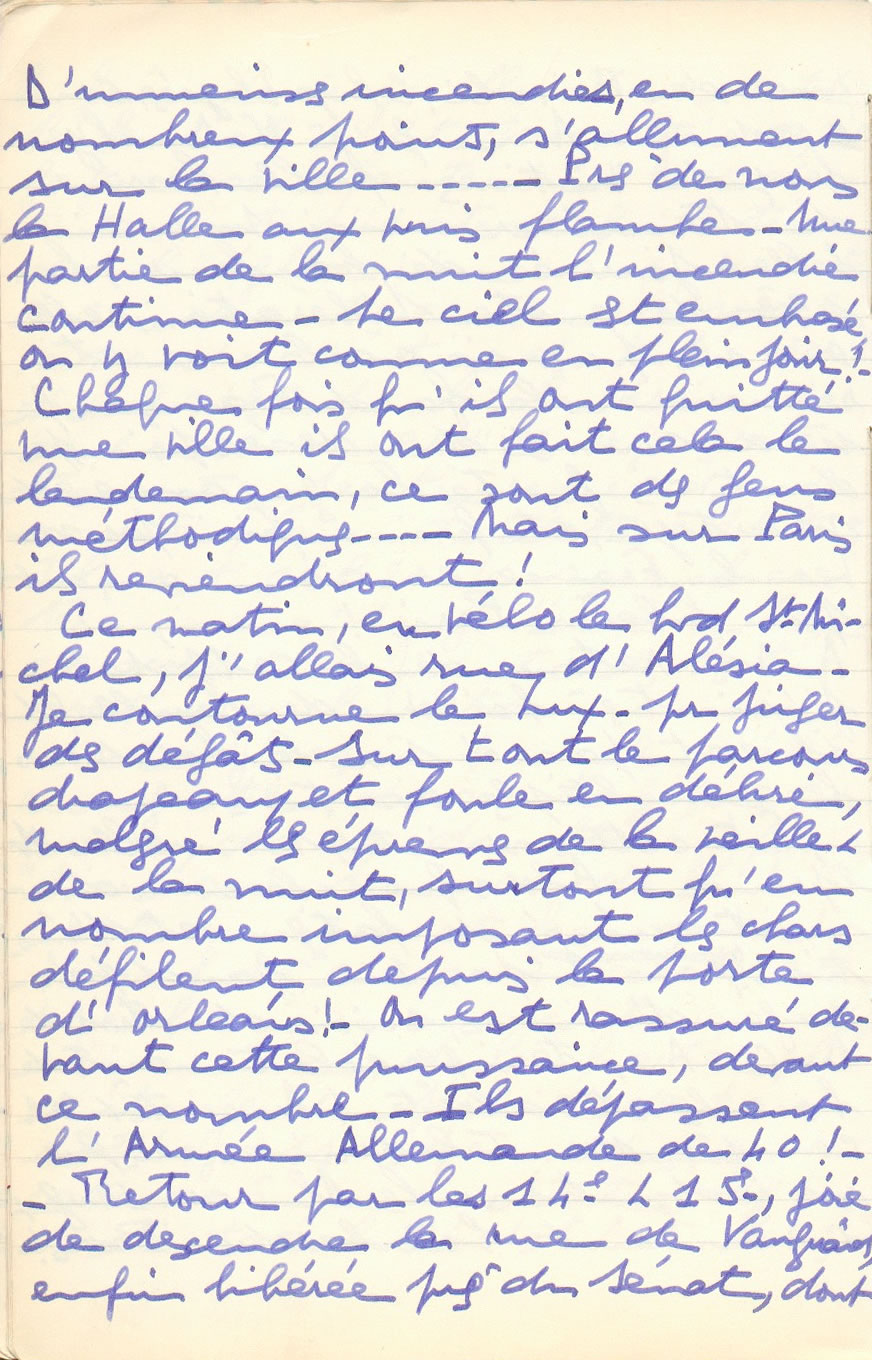 D'immenses incendies, en de
nombreux points, s'allument
sur la ville ----- Près de nous
la Halle aux vins flambe - Une
partie de la nuit l'incendie
continue - Le ciel est embrasé
on y voit comme en plein jour !-
Chaque fois qu'ils ont quitté
une ville ils ont fait cela le
lendemain, ce sont des gens
méthodiques ---- Mais sur Paris
ils reviendront !
Ce matin, en vélo le bvd St-Mi-
chel, j'allais rue d'Alésia -
Je contourne le Lux - pr juger
des dégâts - Sur tout le parcours
drapeaux et foule en délire,
malgré les épreuves de la veille &
de la nuit, surtout qu'en
nombre imposant les chars
défilent depuis la porte
d'Orléans !- On est rassuré de-
vant cette puissance, devant
ce nombre - Ils dépassent
l'Armée Allemande de 40 !-
- Retour par les 14e & 15e, joie
de descendre la rue de Vaugirard,
enfin libérée près du Sénat, dont